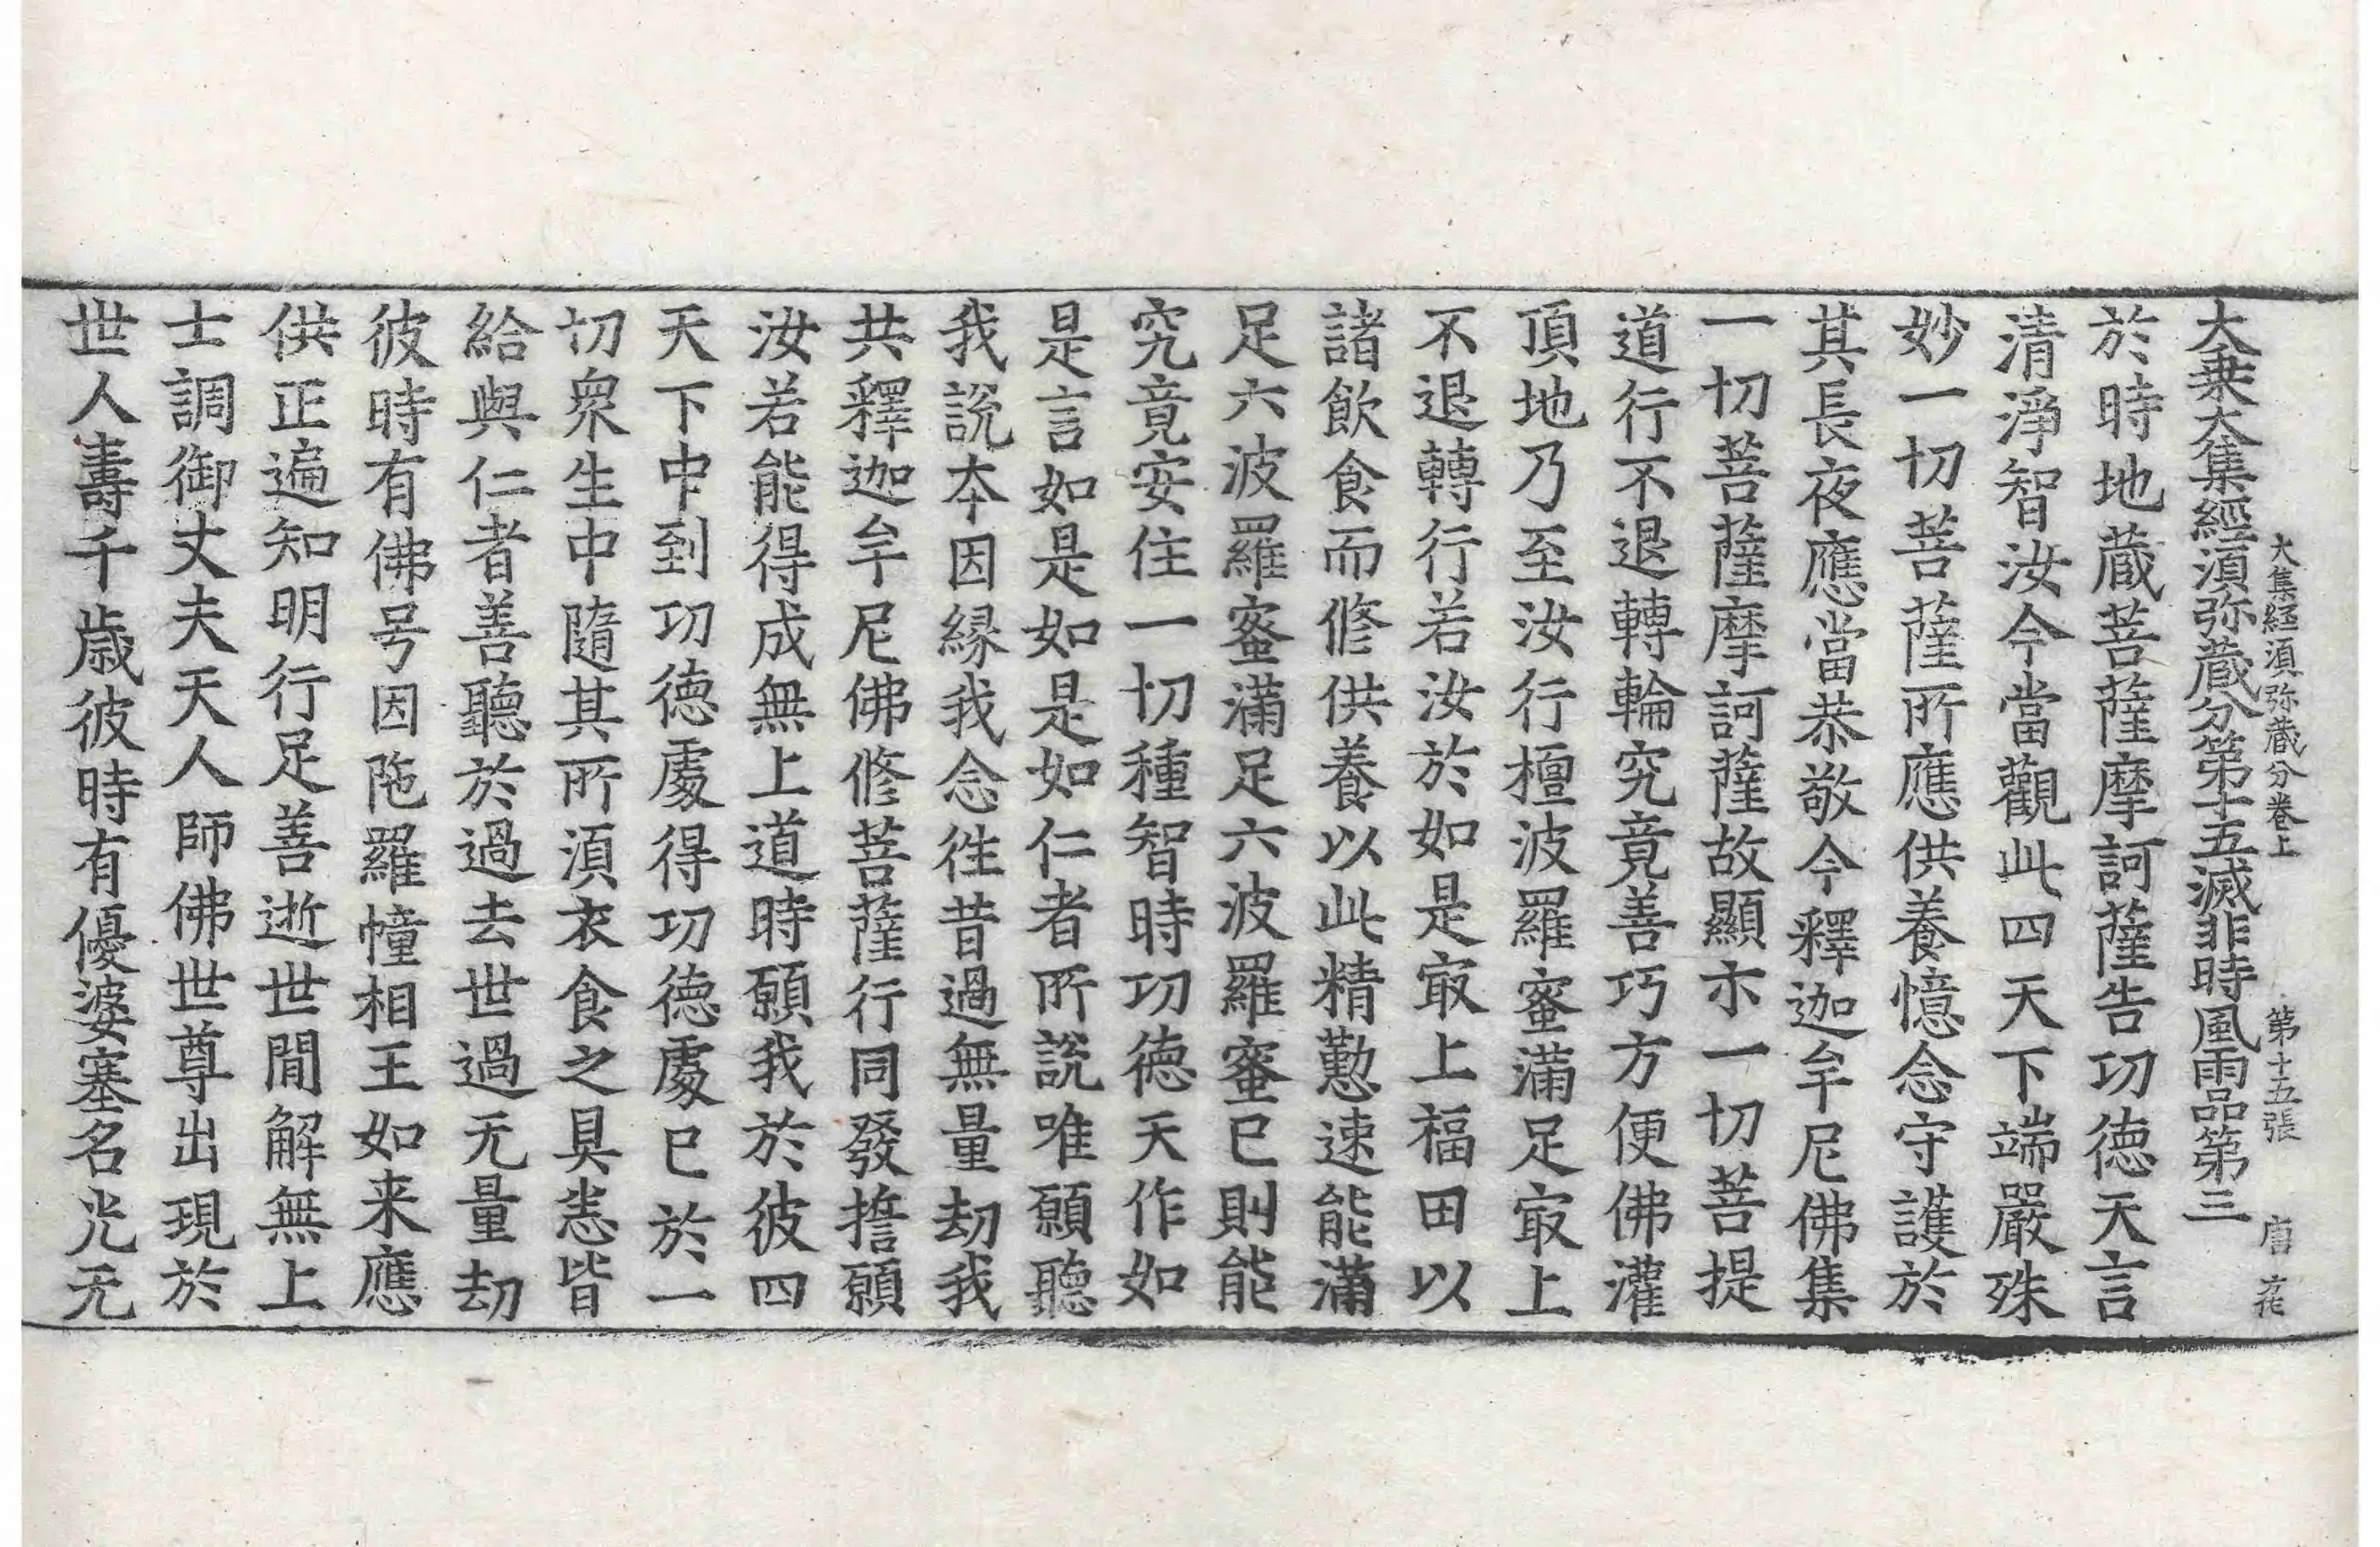 大集経湏弥蔵分卷上 第十五張 唐
大乗大集經湏弥蔵分第十五滅非時風雨品第三
於時地蔵菩薩摩訶薩告功德天言
清淨智汝今當觀此四天下端嚴殊
妙一切菩薩所應供養憶念守護於
其長夜應當恭敬今釋迦牟尼佛集
一切菩薩摩訶薩故顯示一切菩提
道行不退轉輪究竟善巧方便佛灌
頂地乃至汝行檀波羅蜜滿足㝡上
不退轉行若汝於如是㝡上福田以
諸飲食而修供養以此精懃速能滿
足六波羅蜜滿足六波羅蜜已則能
究竟安住一切種智時功德天作如
是言如是如是如仁者所說唯願聽
我說本因縁我念徃昔過無量劫我
共釋迦牟尼佛修菩薩行同發擔願
汝若能得成無上道時願我於彼四
天下中到功德處得功德處已於一
切衆生中隨其所湏衣食之具恙皆
給與仁者善聽於過去世過无量劫
彼時有佛号因陁羅幢相王如来應
供正遍知明行足善逝世閒解無上
士調御丈夫天人師佛世尊出現於
世人壽千歲彼時有優婆塞名光无